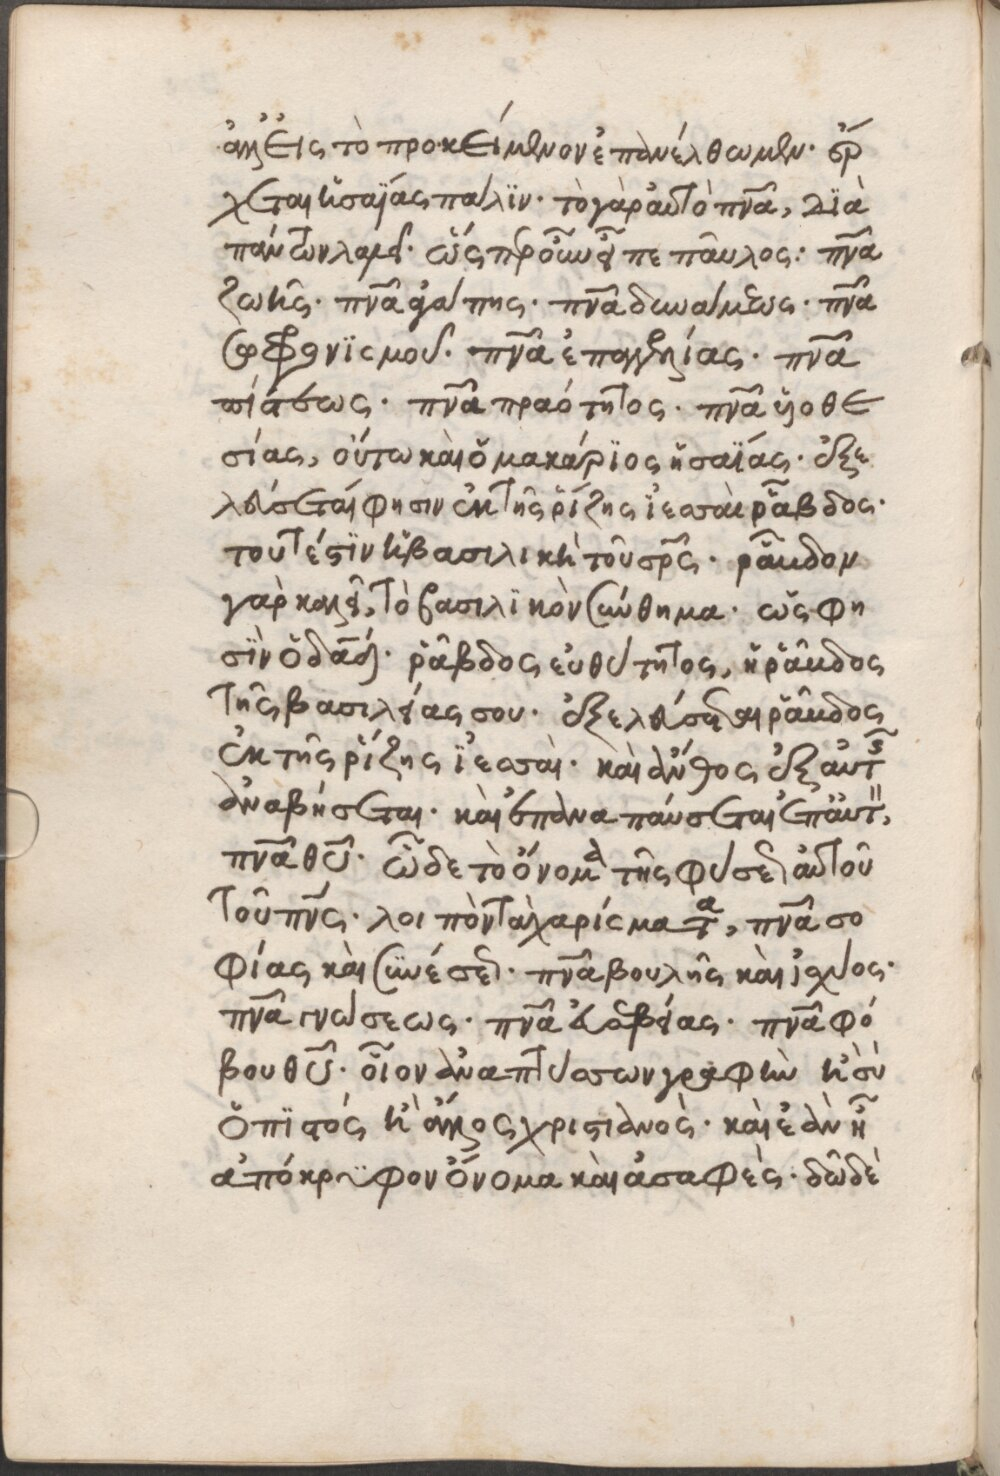 ἀλλ εἰς τὸ προκείμενον ἐπανέλθωμεν· ἔρ
χεται ἡσαΐας παλϊν· τὸ γὰρ ἀυτὸ πνᾶ, δϊὰ
πάντων λαλεῖ· ὥς προεῖπε πᾶυλος: πνᾶ
ζωῆς· πνᾶ ἀγάπης· πνᾶ δυνάμεως· πνᾶ
σωφρονϊσμοῦ· πνᾶ ἐπαγγελίας· πνᾶ
πίστεως· πνᾶ πραότητος· πνᾶ ὑιοθε
σίας, ὁύτω καὶ ὁ μακάρϊος ἡσαϊάς· ἐξε
λεύσεται φησιν ἐκ τῆς ῥίζης ἰεσσαὶ ῥάβδος·
τουτέστϊν ἡ βασιλικὴ τοῦ σρς· ῥάβδον
γὰρ καλεῖ, τὸ βασιλϊκὸν σύνθημα· ὥς φη
σϊν ὁ δαδ· ῥάβδος ἐυθύτητος, ἡ ῥάβδος
τῆς βασιλείας σου· ἐξελεύσεται ῥάβδος
ἐκ τῆς ῥίζης ϊεσσαὶ· καὶ ἄνθος ἐξ ἀυτῆς
ἀναβήσεται· καὶ ἐπαναπάυσεται ἐπ ἀυτ,
πνᾶ θυ· ὧδε τὸ ὄνομα τῆς φύσεως ἀυτοῦ
τοῦ πνς· λοιπὸν τὰ χαρίσματα, πνᾶ σο
φίας καὶ συνέσεως· πνᾶ βουλῆς καὶ ἰσχύος·
πνᾶ γνώσεως· πνᾶ ἐυσεβείας· πνᾶ φό
βου θυ· οἷον ἀναπτύσσων γραφὴν ἢ σὺ
ὁ πϊστός ἢ ἄλλος χριστιανὸς· καὶ ἐὰν ἦ
απόκρϋφον ὄνομα καὶ ἀσαφὲς· δῶδὲ